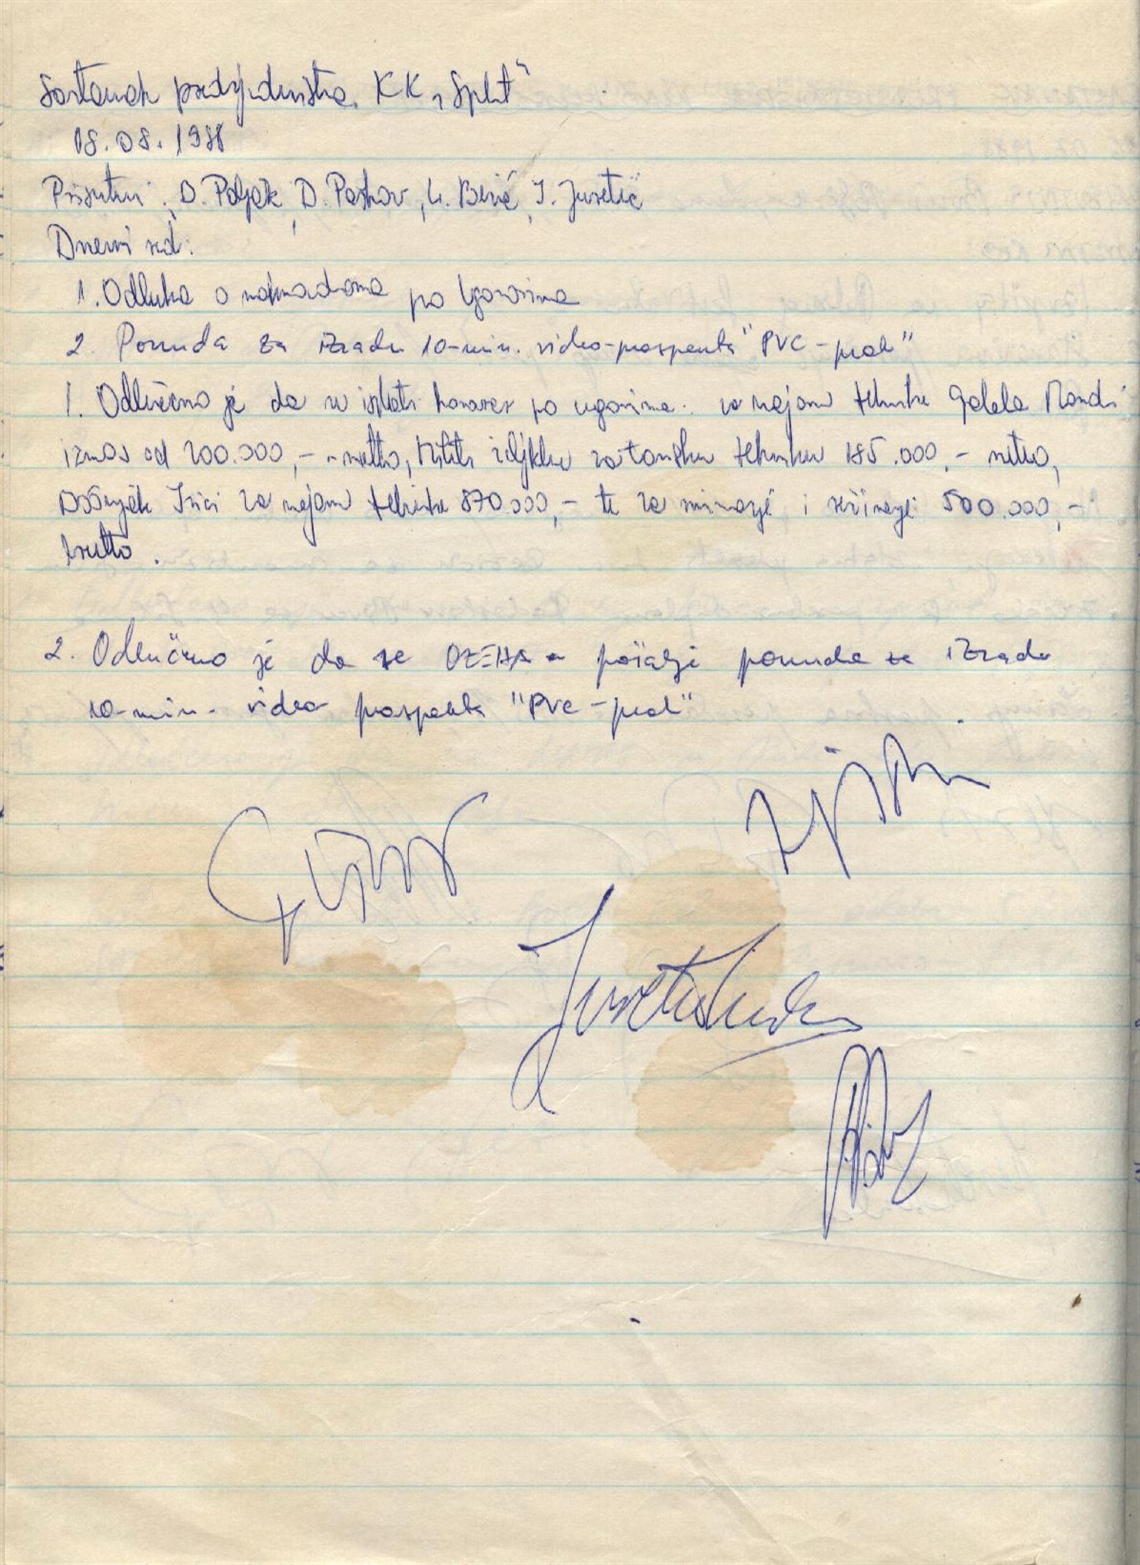 Sastanak predsjedništva KK „Split"
08.08.1988
Prisutni: D. Poljak, D. Paskov, L. Benić, I. Juretić
Dnevni red:
1. Odluka o naknadama po Ugovorima
2. Ponuda za izradu 10-min. video-prospekta "PVC-prod"
1. Odlučeno je da se isplati honorar po ugovorima. za najam tehnike
iznos od 200.000,- netto, za tonsku tehniku 185.000,- netto,
za najam tehnike 870.000,- te za snimanje i režiranje 500.000,-
brutto.
2. Odlučeno je da se pošalje ponuda za izradu
10-min. video prospekta "PVC-prod"